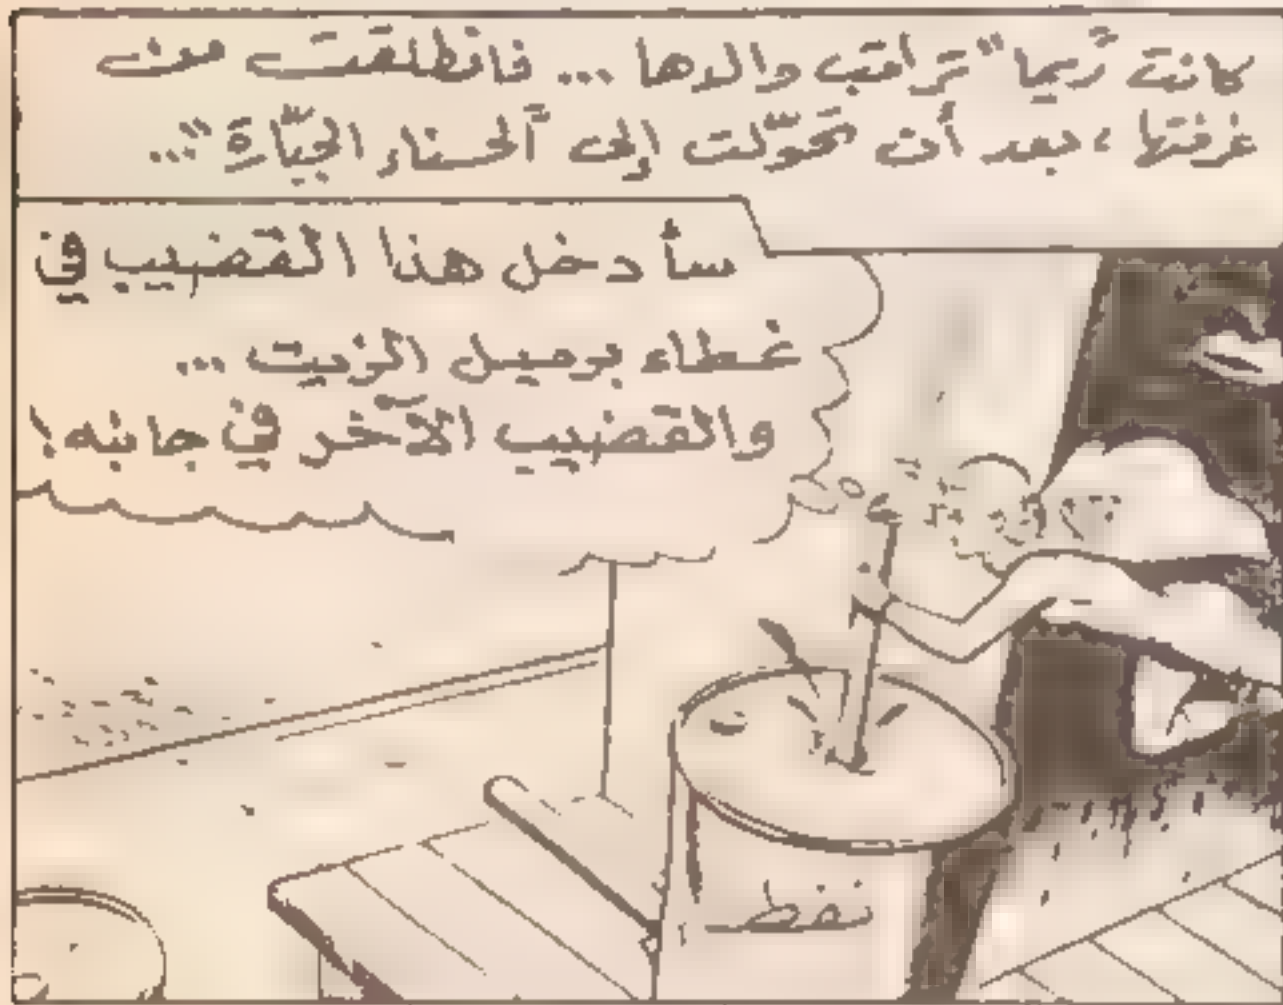 كانت "ريما" تراقب والدها ... فانطلقت من
غرفتها، بعد أن تحوّلت إلى "الحسناء الجبّارة"...
سأدخل هذا القضيب في
غطاء برميل الزيت ...
والقضيب الآخر في جانبه!
نفط